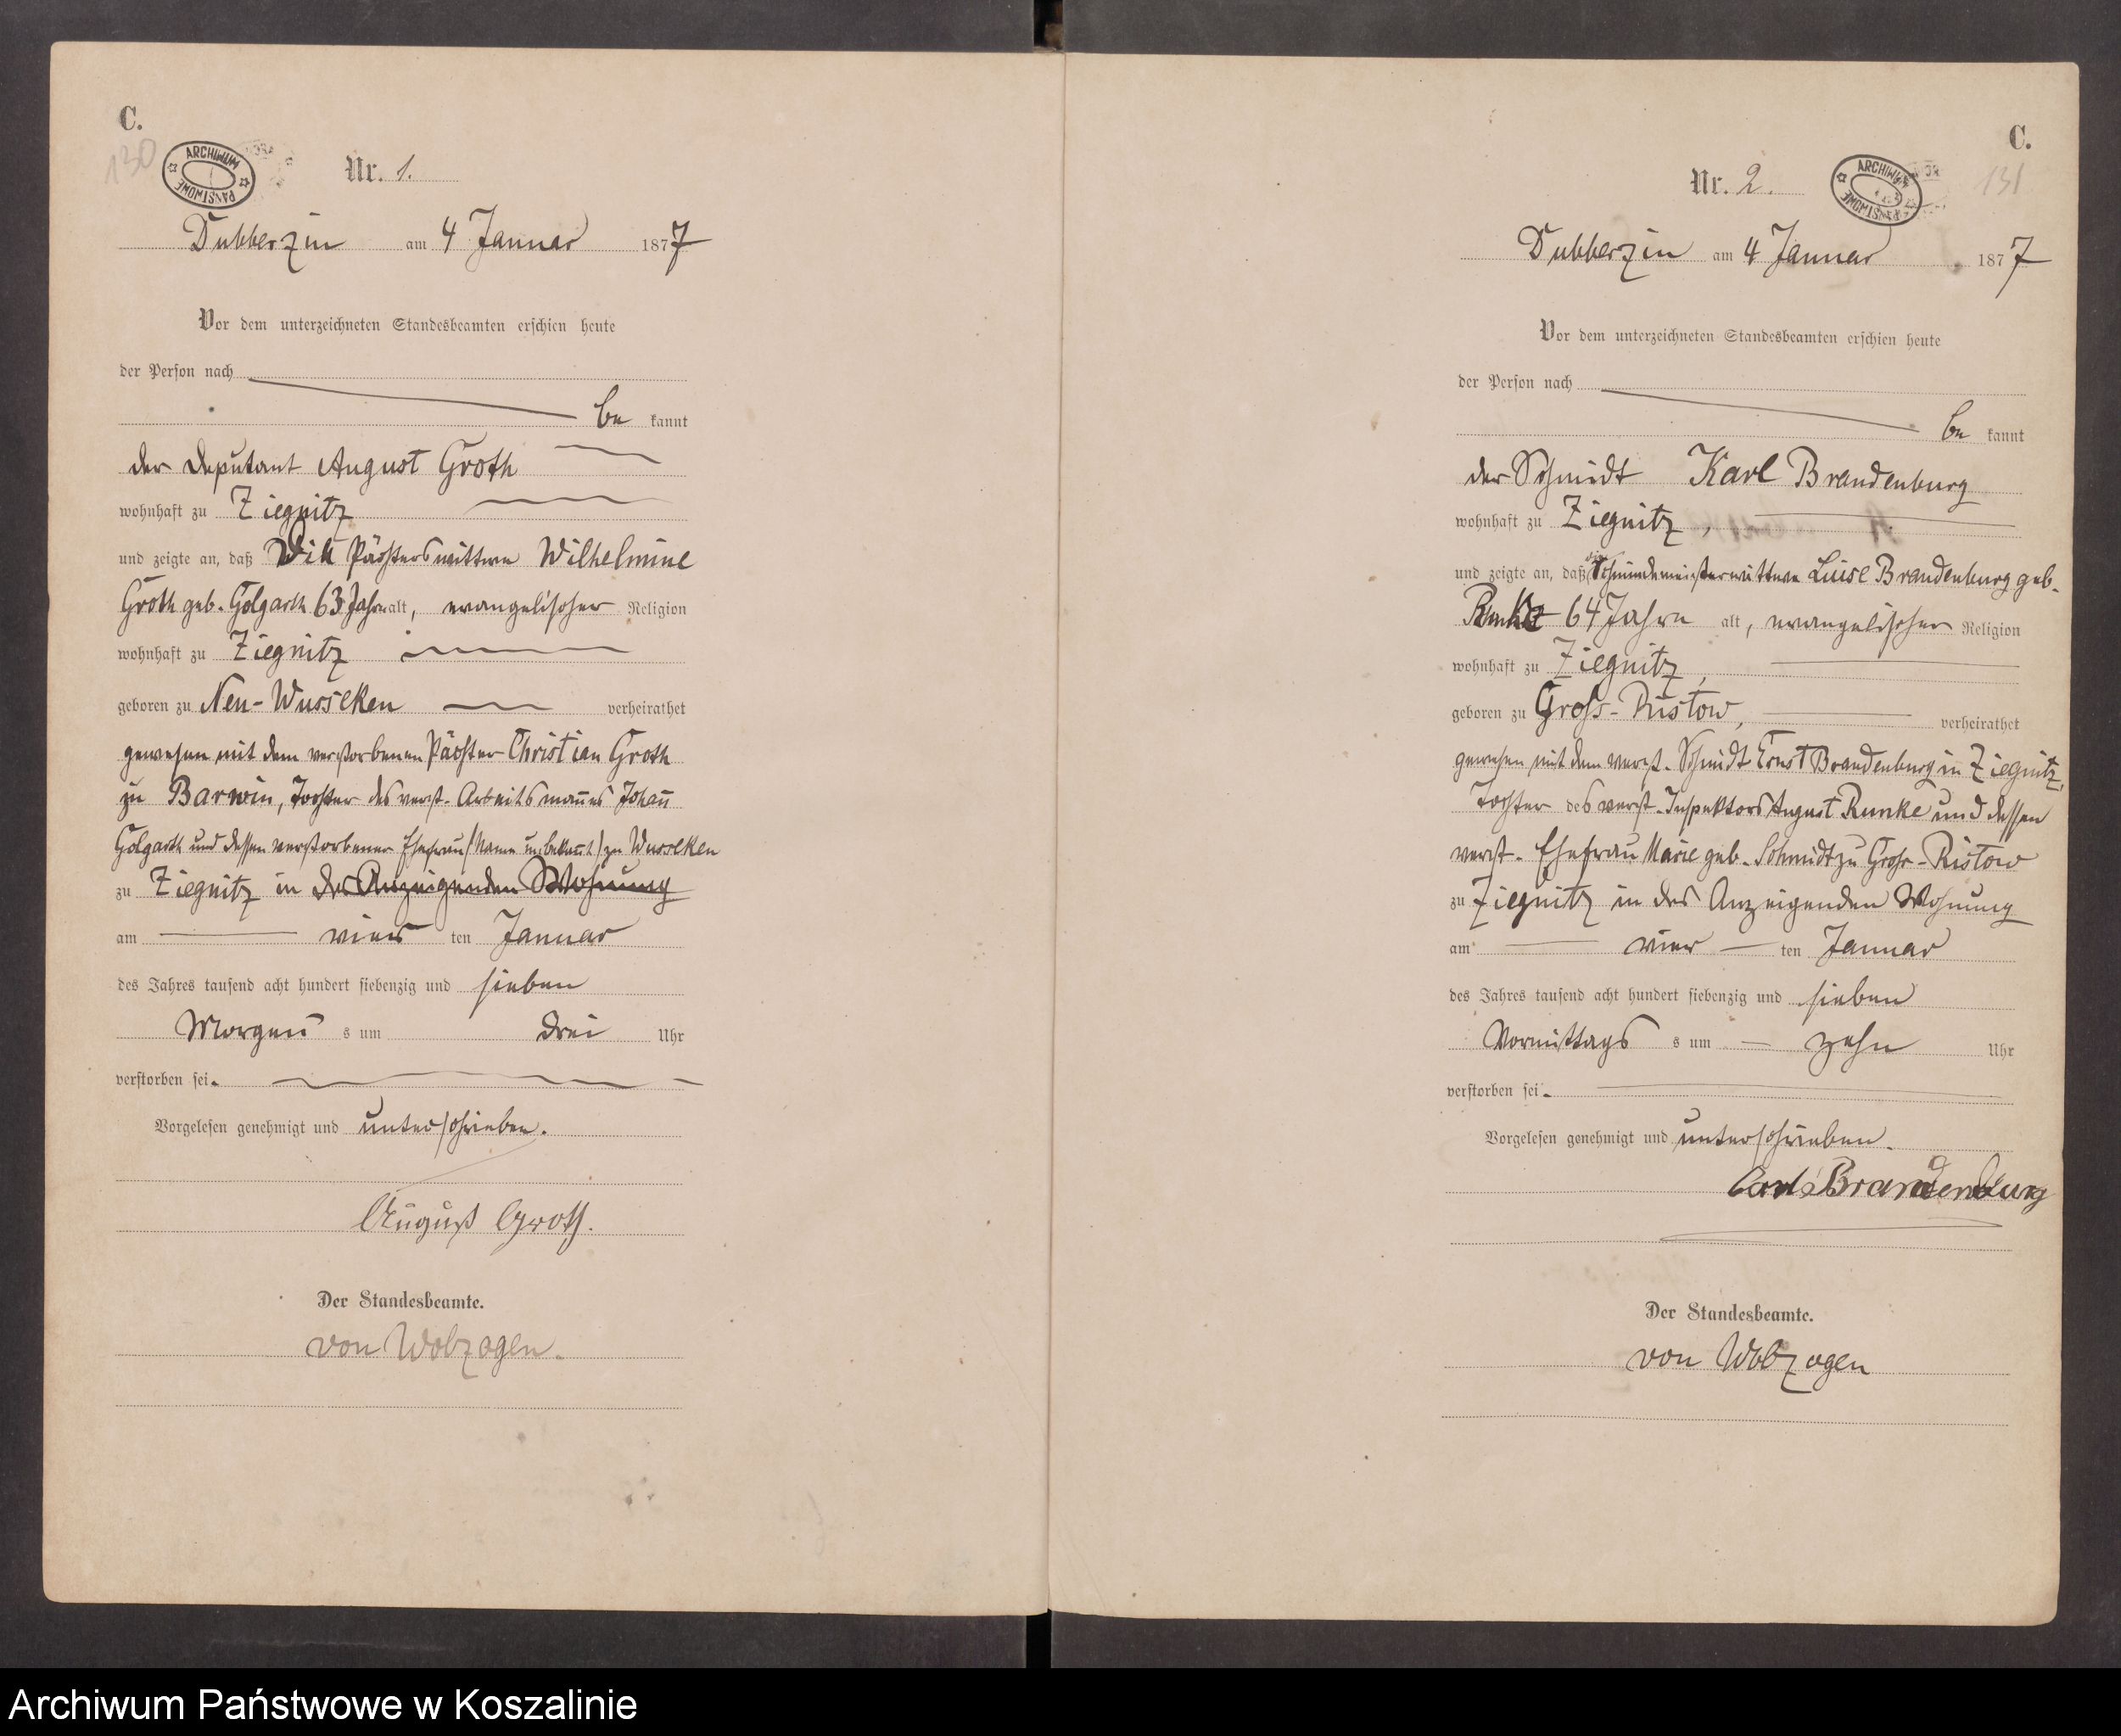 C.
130
ARCHIWUM PAŃSTWOWE
Nr. 1.
Dubberzin am 4 Januar 1877
Vor dem unterzeichneten Standesbeamten erschien heute
der Person nach
be kannt
der Deputant August Groth
wohnhaft zu Ziegnitz
und zeigte an, daß Pächterswittwe Wilhelmine
Groth geb. Golgarth 63 Jahre alt, evangelischer Religion
wohnhaft zu Ziegnitz
geboren zu Neu-Wusseken verheirathet
gewesen mit dem verstorbenen Pächter Christian Groth
zu Barwin, Tochter des verst. Arbeitsmannes Johann
Golgarth und dessen verstorbener Ehefrau (Name unbekannt) zu Wusseken
zu Ziegnitz in des Anzeigenden Wohnung
am vier ten Januar
des Jahres tausend acht hundert siebenzig und sieben
Morgens s um drei Uhr
verstorben sei.
Vorgelesen genehmigt und unterschrieben.
August Groth.
Der Standesbeamte.
von Wolzogen.
C.
131
ARCHIWUM PAŃSTWOWE
Nr. 2.
Dubberzin am 4 Januar 1877
Vor dem unterzeichneten Standesbeamten erschien heute
der Person nach
be kannt
der Schmidt Karl Brandenburg
wohnhaft zu Ziegnitz,
und zeigte an, daß die Schmiedemeisterwittwe Luise Brandenburg geb.
Runke 64 Jahre alt, evangelischer Religion
wohnhaft zu Ziegnitz,
geboren zu Gross-Ristow, verheirathet
gewesen mit dem verst. Schmidt Ernst Brandenburg in Ziegnitz,
Tochter des verst. Inspektors August Runke und dessen
verst. Ehefrau Marie geb. Schmidt zu Gross-Ristow
zu Ziegnitz in des Anzeigenden Wohnung
am vier ten Januar
des Jahres tausend acht hundert siebenzig und sieben
Vormittags s um zehn Uhr
verstorben sei.
Vorgelesen genehmigt und unterschrieben.
Carl Brandenburg
Der Standesbeamte.
von Wolzogen
Archiwum Państwowe w Koszalinie